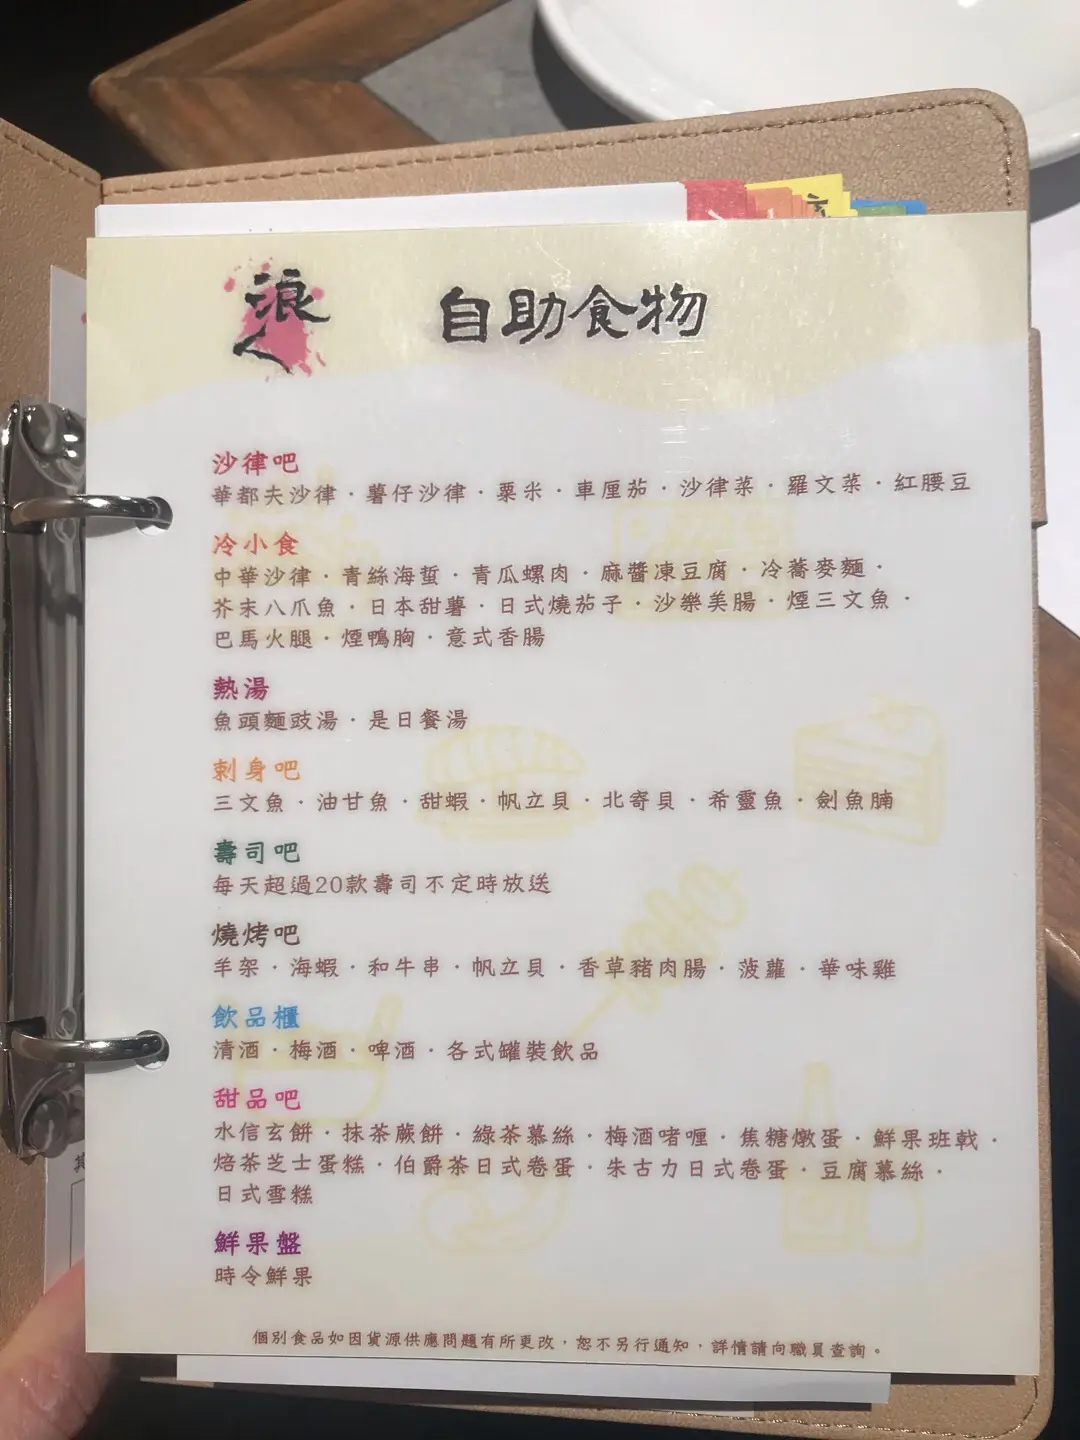 浪人
自助食物
沙律吧
華都夫沙律．薯仔沙律．粟米．車厘茄．沙律菜．羅文菜．紅腰豆
冷小食
中華沙律．青絲海蜇．青瓜螺肉．麻醬凍豆腐．冷蕎麥麵．
芥末八爪魚．日本甜薯．日式燒茄子．沙樂美腸．煙三文魚．
巴馬火腿．煙鴨胸．意式香腸
熱湯
魚頭麵豉湯．是日餐湯
刺身吧
三文魚．油甘魚．甜蝦．帆立貝．北寄貝．希靈魚．劍魚腩
壽司吧
每天超過20款壽司不定時放送
燒烤吧
羊架．海蝦．和牛串．帆立貝．香草豬肉腸．菠蘿．華味雞
飲品櫃
清酒．梅酒．啤酒．各式罐裝飲品
甜品吧
水信玄餅．抹茶蕨餅．綠茶慕絲．梅酒啫喱．焦糖燉蛋．鮮果班戟．
焙茶芝士蛋糕．伯爵茶日式卷蛋．朱古力日式卷蛋．豆腐慕絲．
日式雪糕
鮮果盤
時令鮮果
個別食品如因貨源供應問題有所更改，恕不另行通知，詳情請向職員查詢。